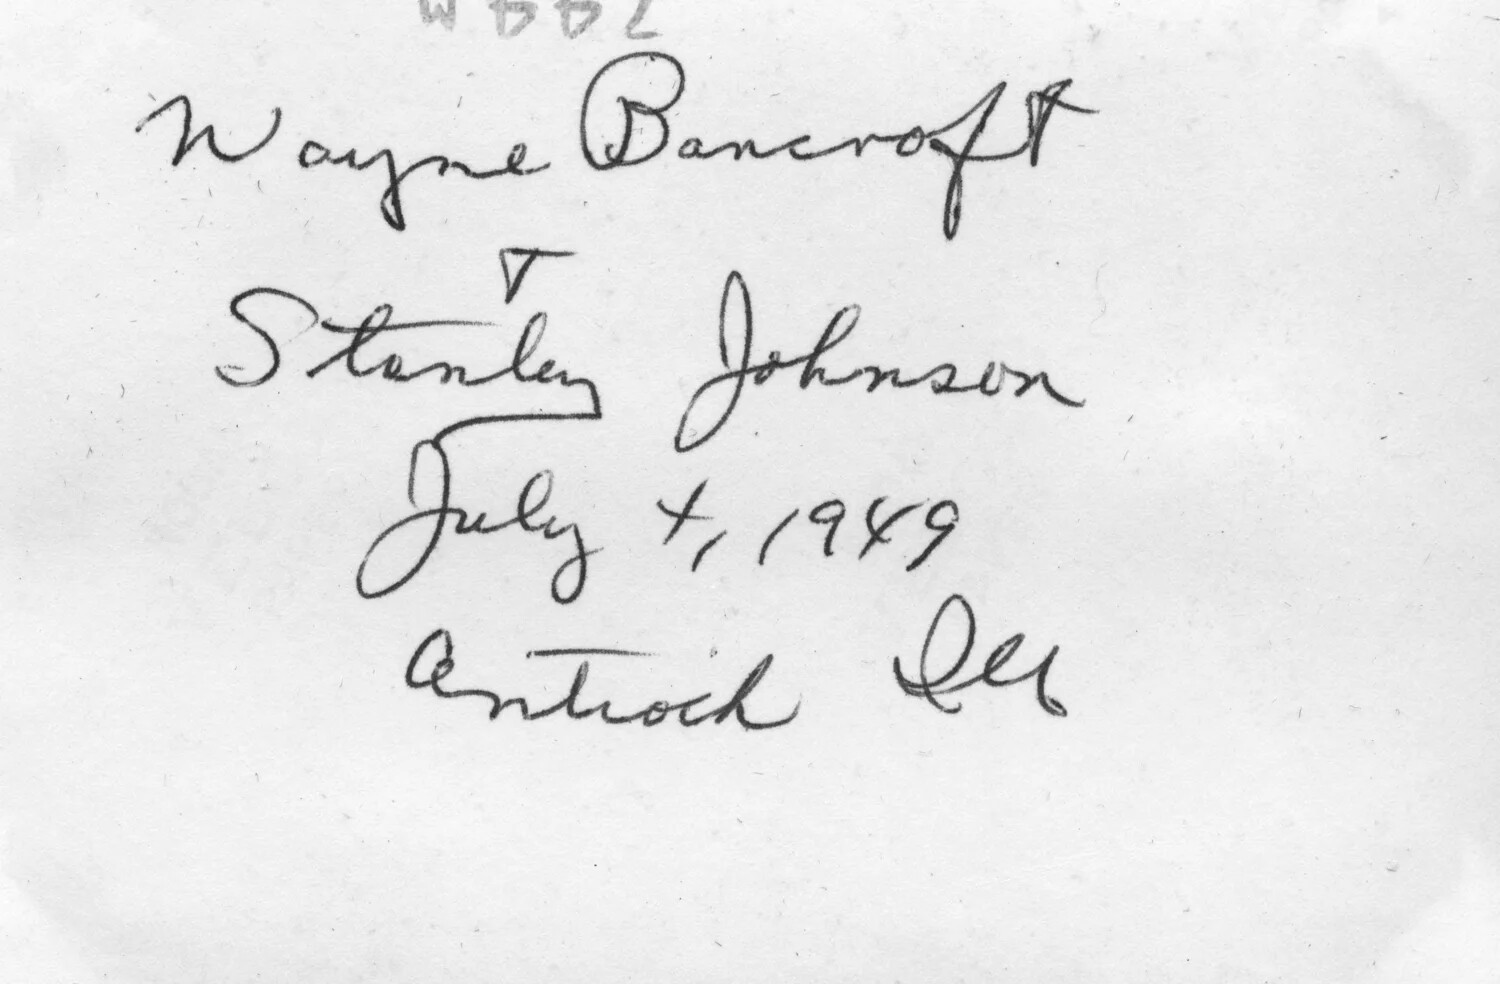 Wayne Bancroft
+
Stanley Johnson
July 4, 1949
Antioch Ill